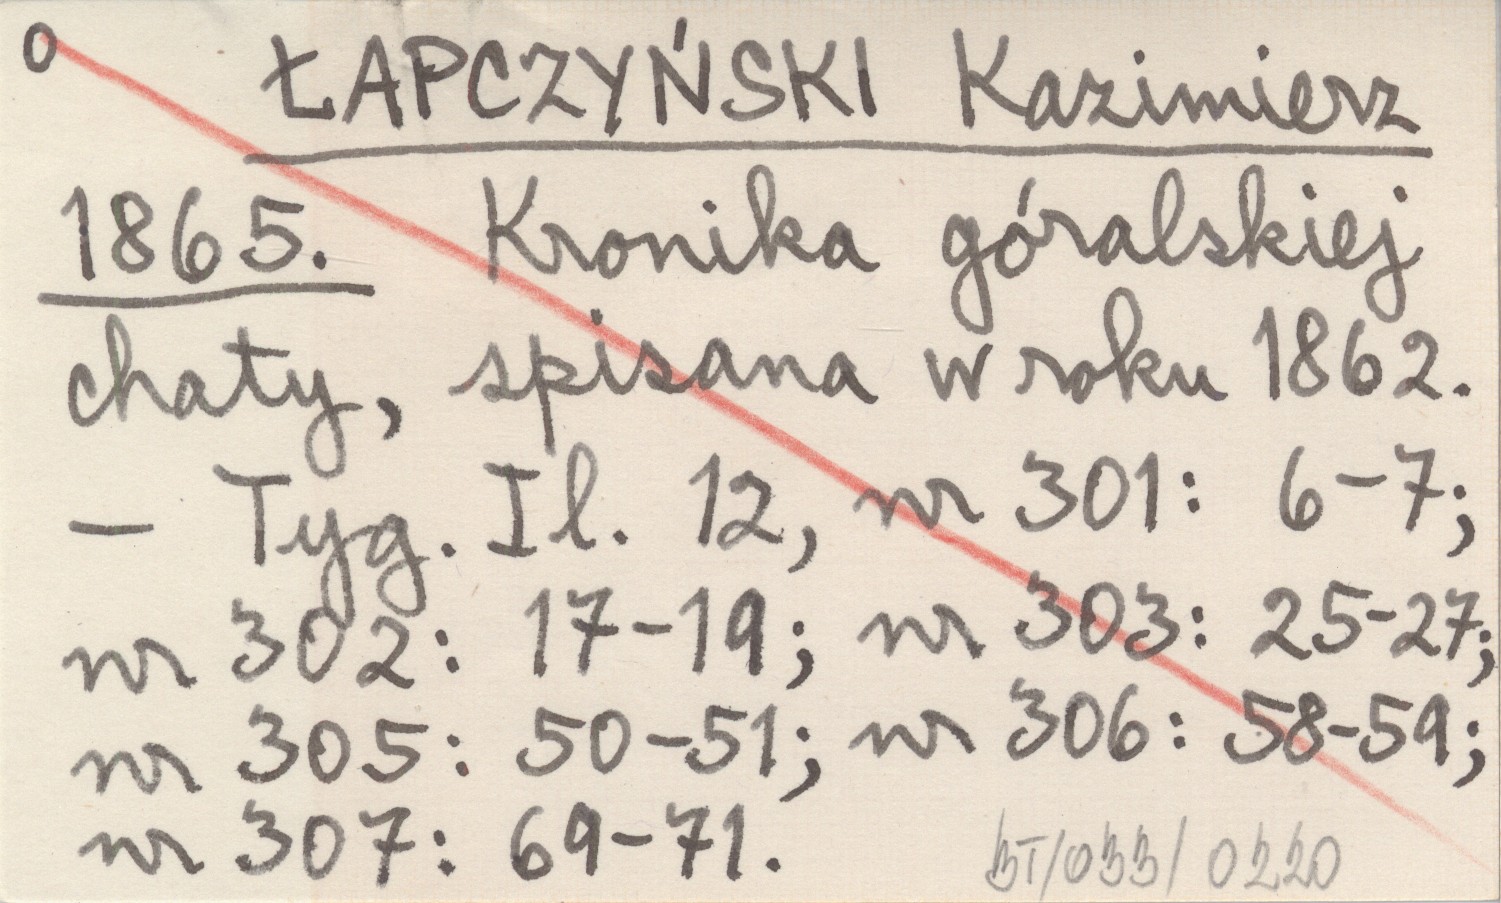 o ŁAPCZYŃSKI Kazimierz
1865. Kronika góralskiej
chaty, spisana w roku 1862.
— Tyg. Il. 12, nr 301: 6-7;
nr 302: 17-19; nr 303: 25-27;
nr 305: 50-51; nr 306: 58-59;
nr 307: 69-71.
BT/033/0220